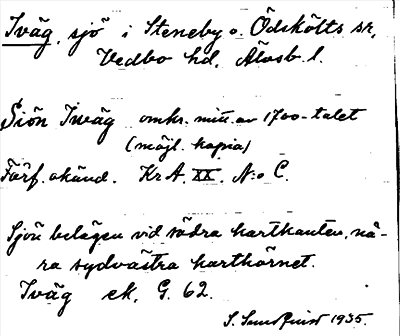 Iväg, sjö i Steneby o. Ödskölts sr,
Vedbo hd, Älvsb. l.
Siön Iwäg omkr. mitt. av 1700-talet
(möjl. kopia)
Förf. okänd. Kr A. XX. N:o C.
Sjön belägen vid södra kartkanten, nä-
ra sydvästra karthörnet.
Iväg ek. G. 62.
S. Sundquist 1935.